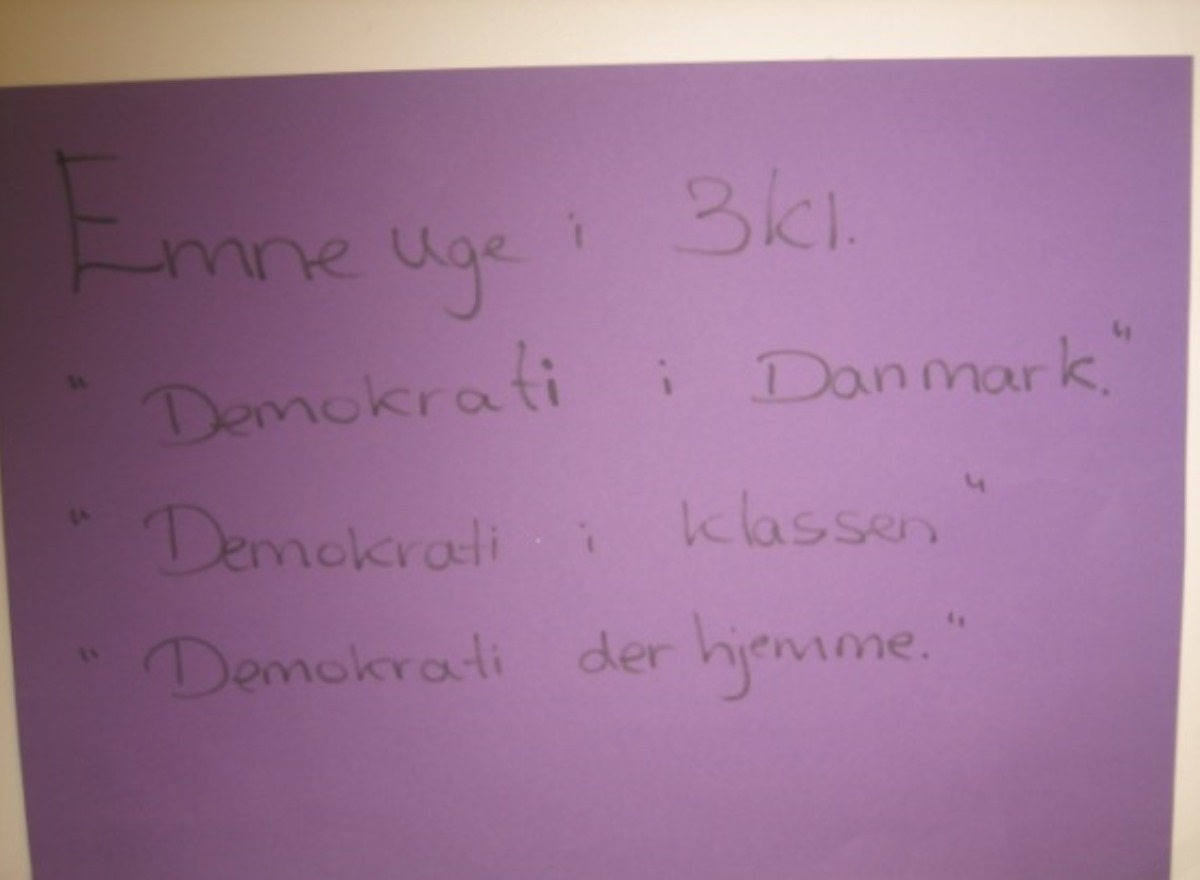 Emne uge i 3kl.
" Demokrati i Danmark."
" Demokrati i klassen "
" Demokrati der hjemme."